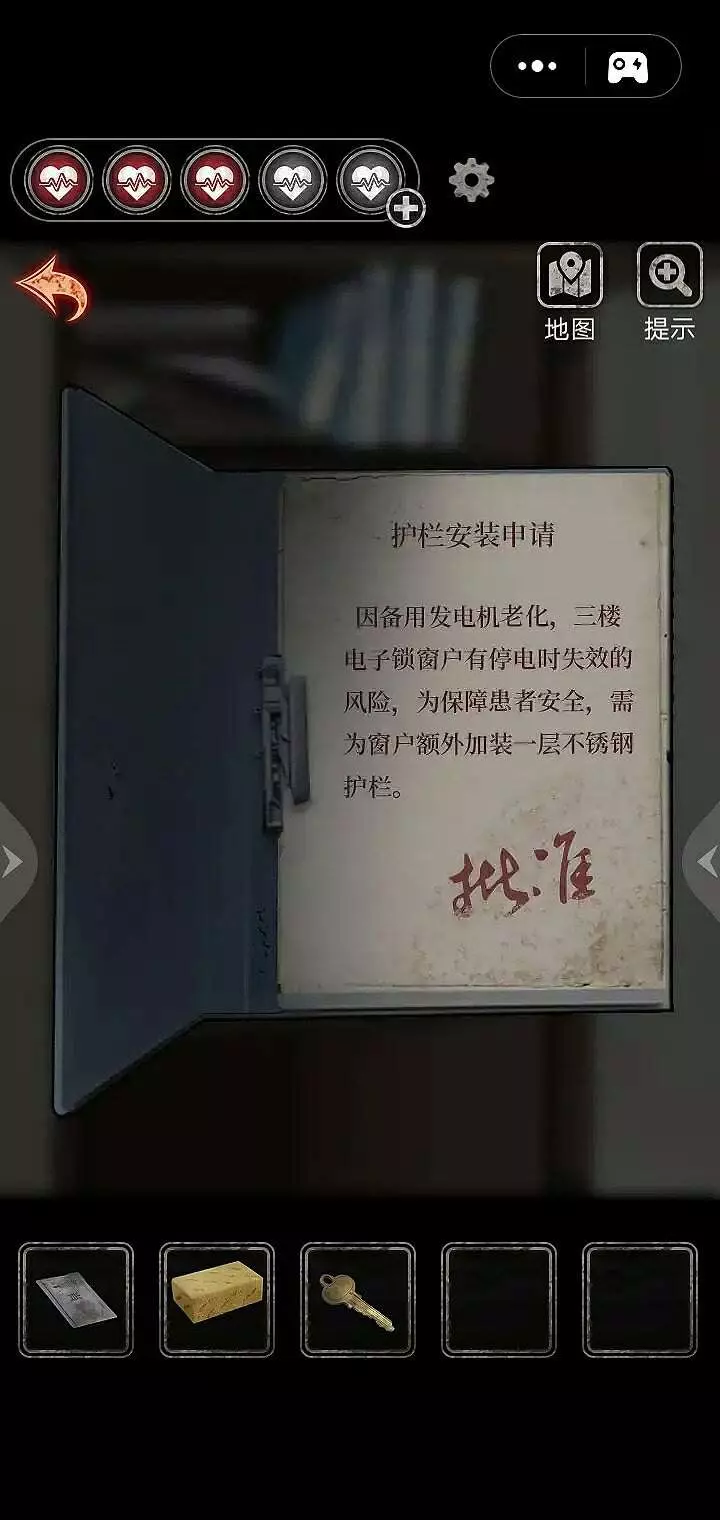 地图
提示
护栏安装申请
因备用发电机老化，三楼
电子锁窗户有停电时失效的
风险，为保障患者安全，需
为窗户额外加装一层不锈钢
护栏。
批准